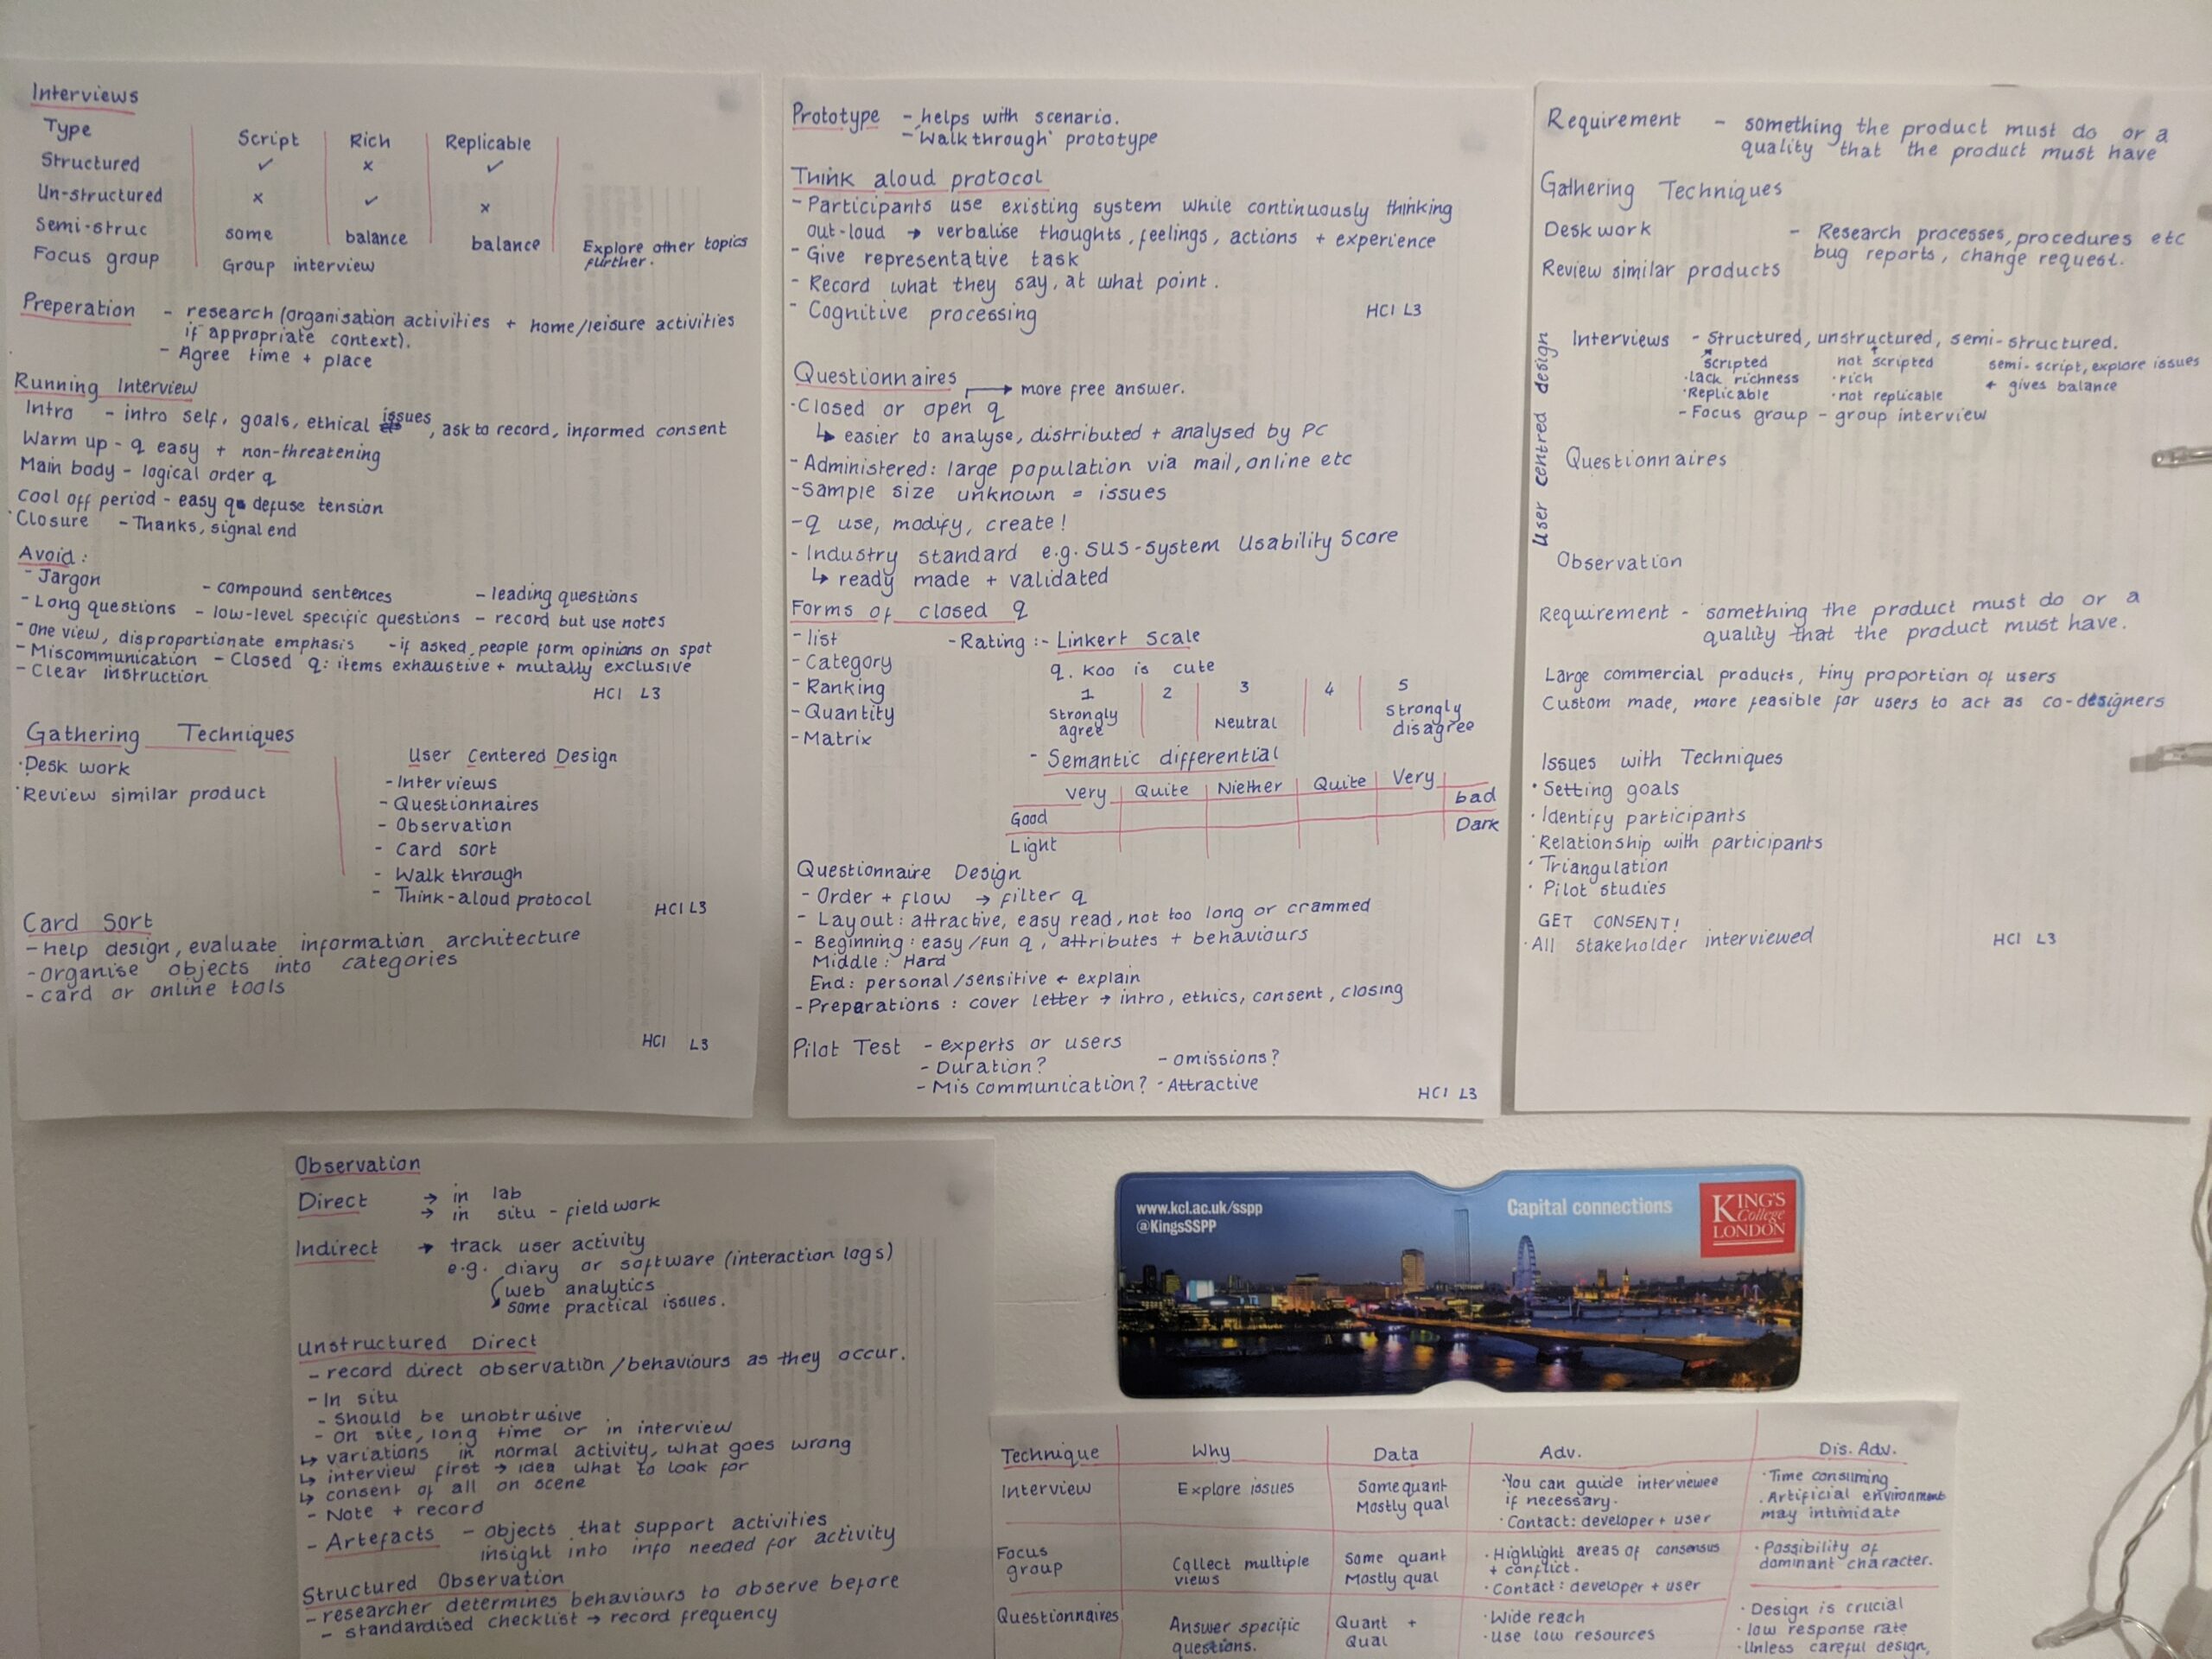 Interviews
Type Script Rich Replicable
Structured ✓ x ✓
Un-structured x ✓ x
Semi-struc some balance balance Explore other topics further.
Focus group Group interview
Preperation - research (organisation activities + home/leisure activities
if appropriate context).
- Agree time + place
Running Interview
Intro - intro self, goals, ethical issues, ask to record, informed consent
Warm up - q easy + non-threatening
Main body - logical order q
Cool off period - easy q defuse tension
Closure - Thanks, signal end
Avoid:
- Jargon - compound sentences - leading questions
- Long questions - low-level specific questions - record but use notes
- One view, disproportionate emphasis - if asked, people form opinions on spot
- Miscommunication - Closed q: items exhaustive + mutally exclusive
- Clear instruction
HCI L3
Gathering Techniques
· Desk work
· Review similar product
User Centered Design
- Interviews
- Questionnaires
- Observation
- Card sort
- Walk through
- Think-aloud protocol
HCI L3
Card Sort
- help design, evaluate information architecture
- organise objects into categories
- card or online tools
HCI L3
Prototype - helps with scenario.
- 'Walk through' prototype
Think aloud protocol
- Participants use existing system while continuously thinking
out-loud → verbalise thoughts, feelings, actions + experience
- Give representative task
- Record what they say, at what point.
- Cognitive processing
HCI L3
Questionnaires
→ more free answer.
· Closed or open q
↳ easier to analyse, distributed + analysed by PC
- Administered: large population via mail, online etc
- Sample size unknown = issues
- q use, modify, create!
- Industry standard e.g. SUS-System Usability Score
↳ ready made + validated
Forms of closed q
- list
- Category
- Ranking
- Quantity
- Matrix
- Rating :- Linkert Scale
q. Koo is cute
1 2 3 4 5
Strongly agree Neutral Strongly disagree
- Semantic differential
Very Quite Niether Quite Very
Good bad
Light Dark
Questionnaire Design
- Order + flow → filter q
- Layout: attractive, easy read, not too long or crammed
- Beginning: easy/fun q, attributes + behaviours
Middle: Hard
End: personal/sensitive ← explain
- Preparations: cover letter → intro, ethics, consent, closing
Pilot Test - experts or users
- Duration? - omissions?
- Mis communication? - Attractive
HCI L3
Requirement - something the product must do or a
quality that the product must have
Gathering Techniques
Desk work - Research processes, procedures etc
bug reports, change request.
Review similar products
User centred design
Interviews - Structured, unstructured, semi-structured.
scripted not scripted semi-script, explore issues
· lack richness · rich + gives balance
· Replicable · not replicable
- Focus group - group interview
Questionnaires
Observation
Requirement - something the product must do or a
quality that the product must have.
Large commercial products, tiny proportion of users
Custom made, more feasible for users to act as co-designers
Issues with Techniques
· Setting goals
· Identify participants
· Relationship with participants
· Triangulation
· Pilot studies
GET CONSENT!
· All stakeholder interviewed
HCI L3
Observation
Direct → in lab
→ in situ - field work
Indirect → track user activity
e.g. diary or software (interaction logs)
web analytics
some practical issues.
Unstructured Direct
- record direct observation/behaviours as they occur.
- In situ
- Should be unobtrusive
- on site, long time or in interview
↳ variations in normal activity, what goes wrong
↳ interview first → idea what to look for
↳ consent of all on scene
- Note + record
- Artefacts - objects that support activities
insight into info needed for activity
Structured Observation
- researcher determines behaviours to observe before
- standardised checklist → record frequency
www.kcl.ac.uk/sspp
@KingsSSPP
Capital connections
KING'S
College
LONDON
Technique Why Data Adv. Dis. Adv.
Interview Explore issues
Some quant
Mostly qual
· You can guide interviewee
if necessary.
· Contact: developer + user
· Time consuming
· Artificial environment
may intimidate
Focus
group
Collect multiple
views
Some quant
Mostly qual
· Highlight areas of consensus
+ conflict.
· Contact: developer + user
· Possibility of
dominant character.
Questionnaires
Answer specific
questions.
Quant +
Qual
· Wide reach
· Use low resources
· Design is crucial
· low response rate
· Unless careful design,